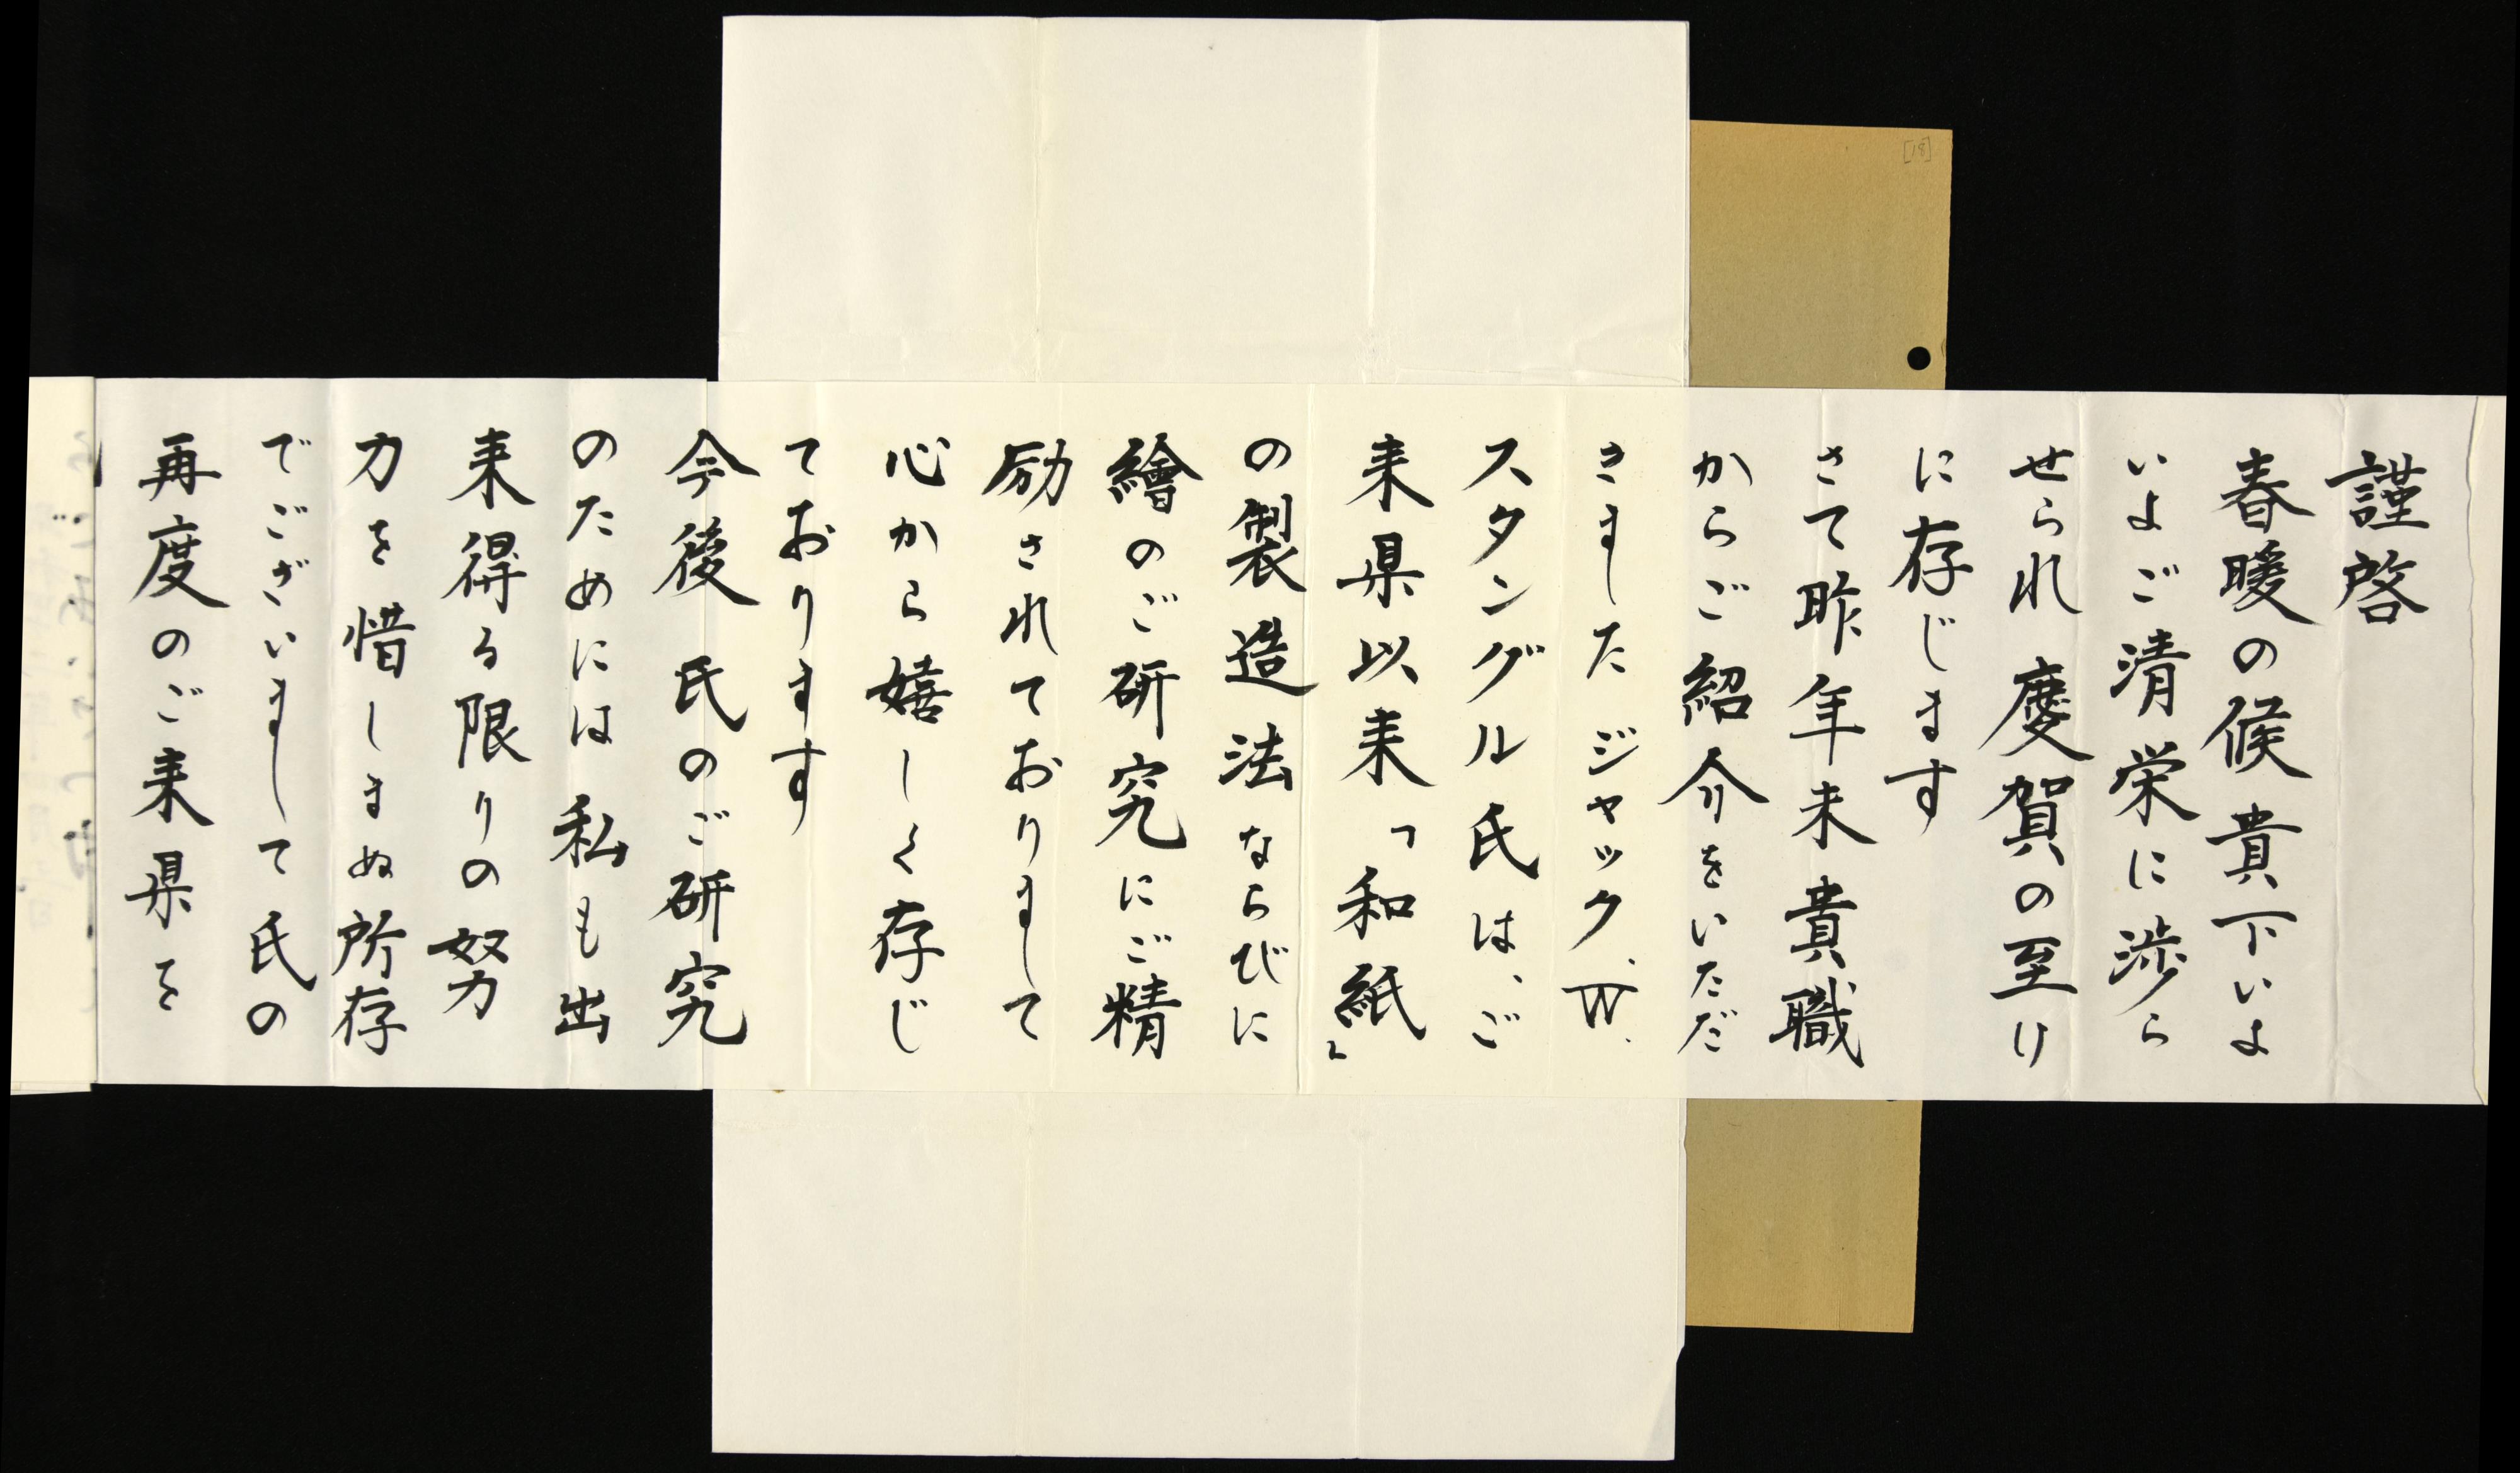 謹啓
春暖の候貴下いよ
いよご清栄に渉ら
せられ慶賀の至り
に存じます
さて昨年末貴職
からご紹介をいただ
きましたジャック、W.
スタングル氏は、ご
来県以来「和紙」
の製造法ならびに
繪のご研究にご精
励されておりまして
心から嬉しく存じ
ております
今後氏のご研究
のためには私も出
来得る限りの努
力を惜しまぬ所存
でございまして氏の
再度のご来県を
[18]